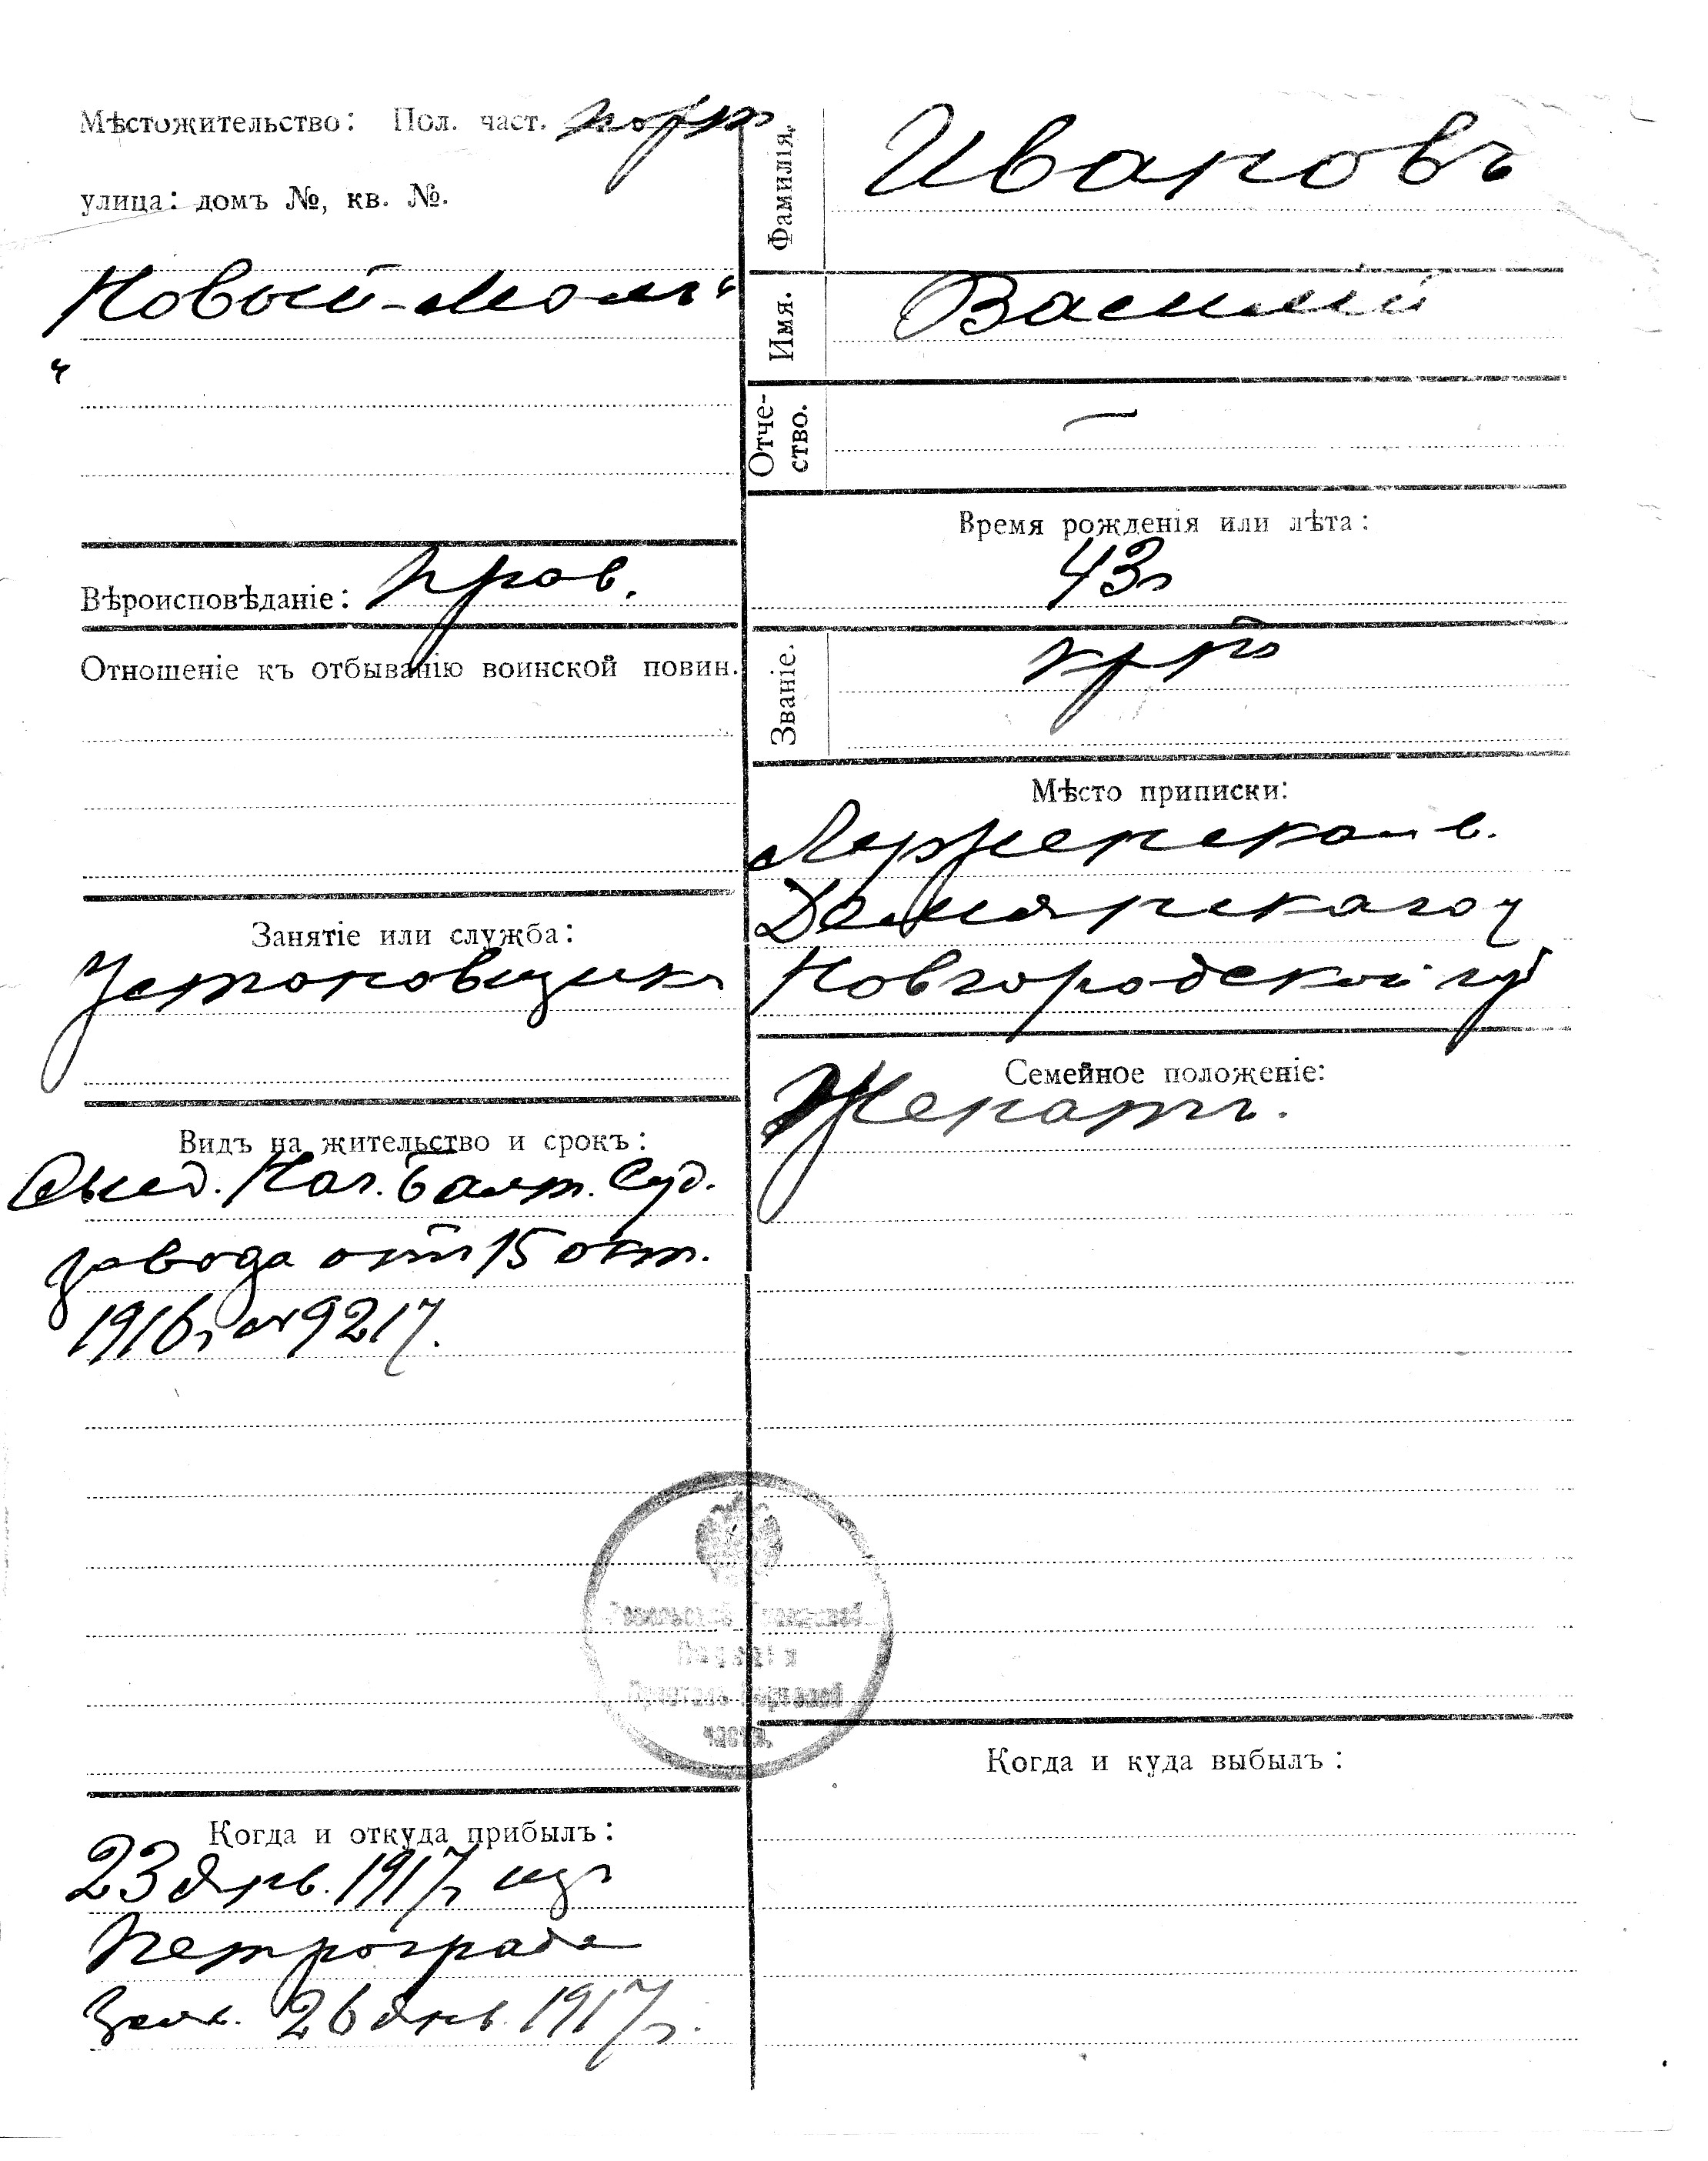 Мѣстожительство: Пол. част. порт
улица: домъ №, кв. №.
Новый-Молъ"
"
Вѣроисповѣданіе: прав.
Отношеніе къ отбыванію воинской повин.
Занятіе или служба:
Установщикъ
Видъ на жительство и срокъ:
Свид. Нач. Балт. Суд.
завода отъ 15 окт.
1916г № 9217.
Когда и откуда прибылъ:
23 Янв. 1917г изъ
Петрограда
Заяв. 26 Янв. 1917г.
Фамилія.
Ивановъ
Имя.
Василій
Отче-
ство.
—
Время рожденія или лѣта:
43г
Званіе.
кр-нъ
Мѣсто приписки:
в.
Демянскаго у
Новгородской гу
Семейное положеніе:
Женатъ.
Ревельской Городской
Полиціи
части.
Когда и куда выбылъ: